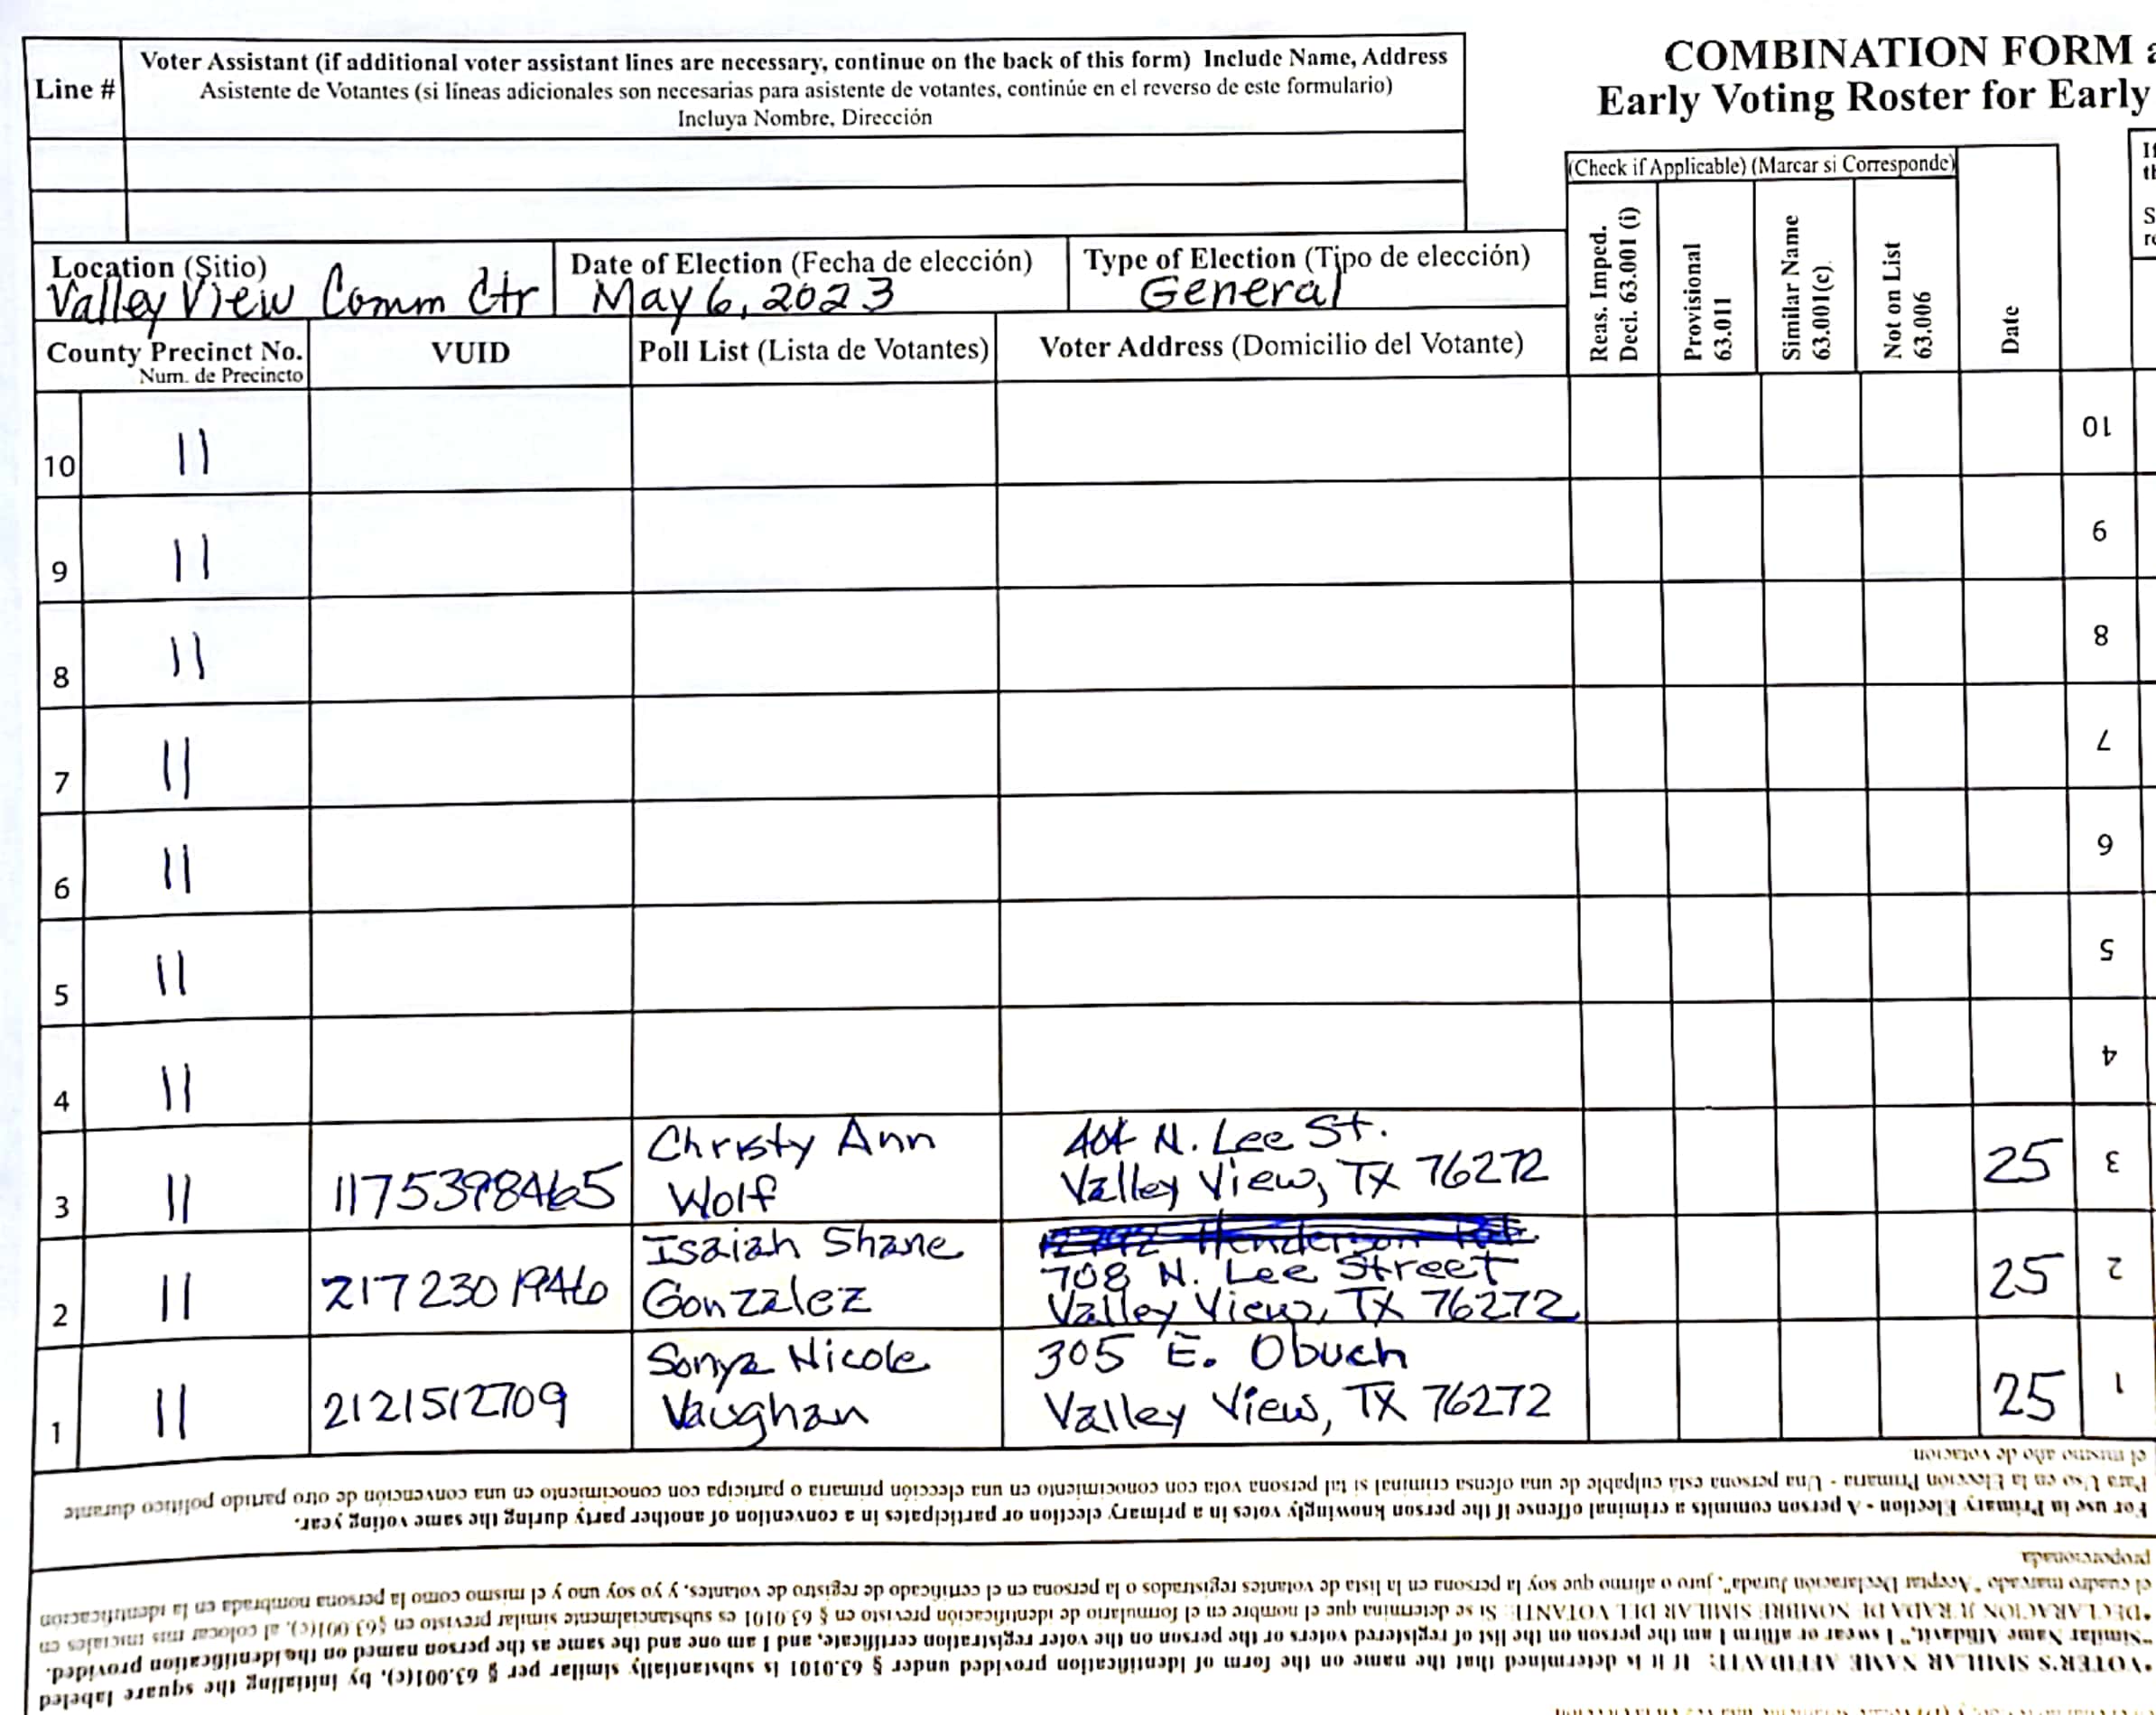 Line #
Voter Assistant (if additional voter assistant lines are necessary, continue on the back of this form) Include Name, Address
Asistente de Votantes (si líneas adicionales son necesarias para asistente de votantes, continúe en el reverso de este formulario)
Incluya Nombre, Dirección
COMBINATION FORM
Early Voting Roster for Early
(Check if Applicable) (Marcar si Corresponde)
Reas. Imped.
Deci. 63.001 (i)
Provisional
63.011
Similar Name
63.001(c)
Not on List
63.006
Date
Location (Sitio)
Valley View Comm Ctr
Date of Election (Fecha de elección)
May 6, 2023
Type of Election (Tipo de elección)
General
County Precinct No.
Num. de Precincto
VUID
Poll List (Lista de Votantes)
Voter Address (Domicilio del Votante)
10 11 10
9 11 9
8 11 8
7 11 7
6 11 6
5 11 5
4 11 4
3 11 1175398465 Christy Ann
Wolf
404 N. Lee St.
Valley View, TX 76272
25 3
2 11 2172301946 Isaiah Shane
Gonzalez
708 N. Lee Street
Valley View, TX 76272
25 2
1 11 2121512709 Sonya Nicole
Vaughan
305 E. Obuch
Valley View, TX 76272
25 1
el mismo año de votación
Para Uso en la Elección Primaria - Una persona está culpable de una ofensa criminal si tal persona vota con conocimiento en una elección primaria o participa con conocimiento en una convención de otro partido político durante
For use in Primary Election - A person commits a criminal offense if the person knowingly votes in a primary election or participates in a convention of another party during the same voting year.
proporcionada
el cuadro marcado "Aceptar Declaración Jurada", juro o afirmo que soy la persona en la lista de votantes registrados o la persona en el certificado de registro de votantes, y yo soy uno y el mismo como la persona nombrada en la identificación
*DECLARACION JURADA DE NOMBRE SIMILAR DEL VOTANTE: Si se determina que el nombre en el formulario de identificación previsto en § 63.0101 es substancialmente similar previsto en §63.001(c), al colocar mis iniciales en
"Similar Name Affidavit," I swear or affirm I am the person on the list of registered voters or the person on the voter registration certificate, and I am one and the same as the person named on the identification provided.
*VOTER'S SIMILAR NAME AFFIDAVIT: If it is determined that the name on the form of identification provided under § 63.0101 is substantially similar per § 63.001(c), by initialing the square labeled